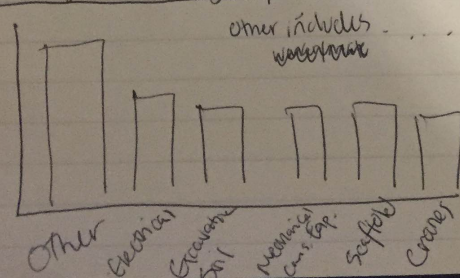 other includes . . . . .
Other
Electrical
Excavation
Soil
Mechanical
Cons. Eqp.
Scaffold
Cranes